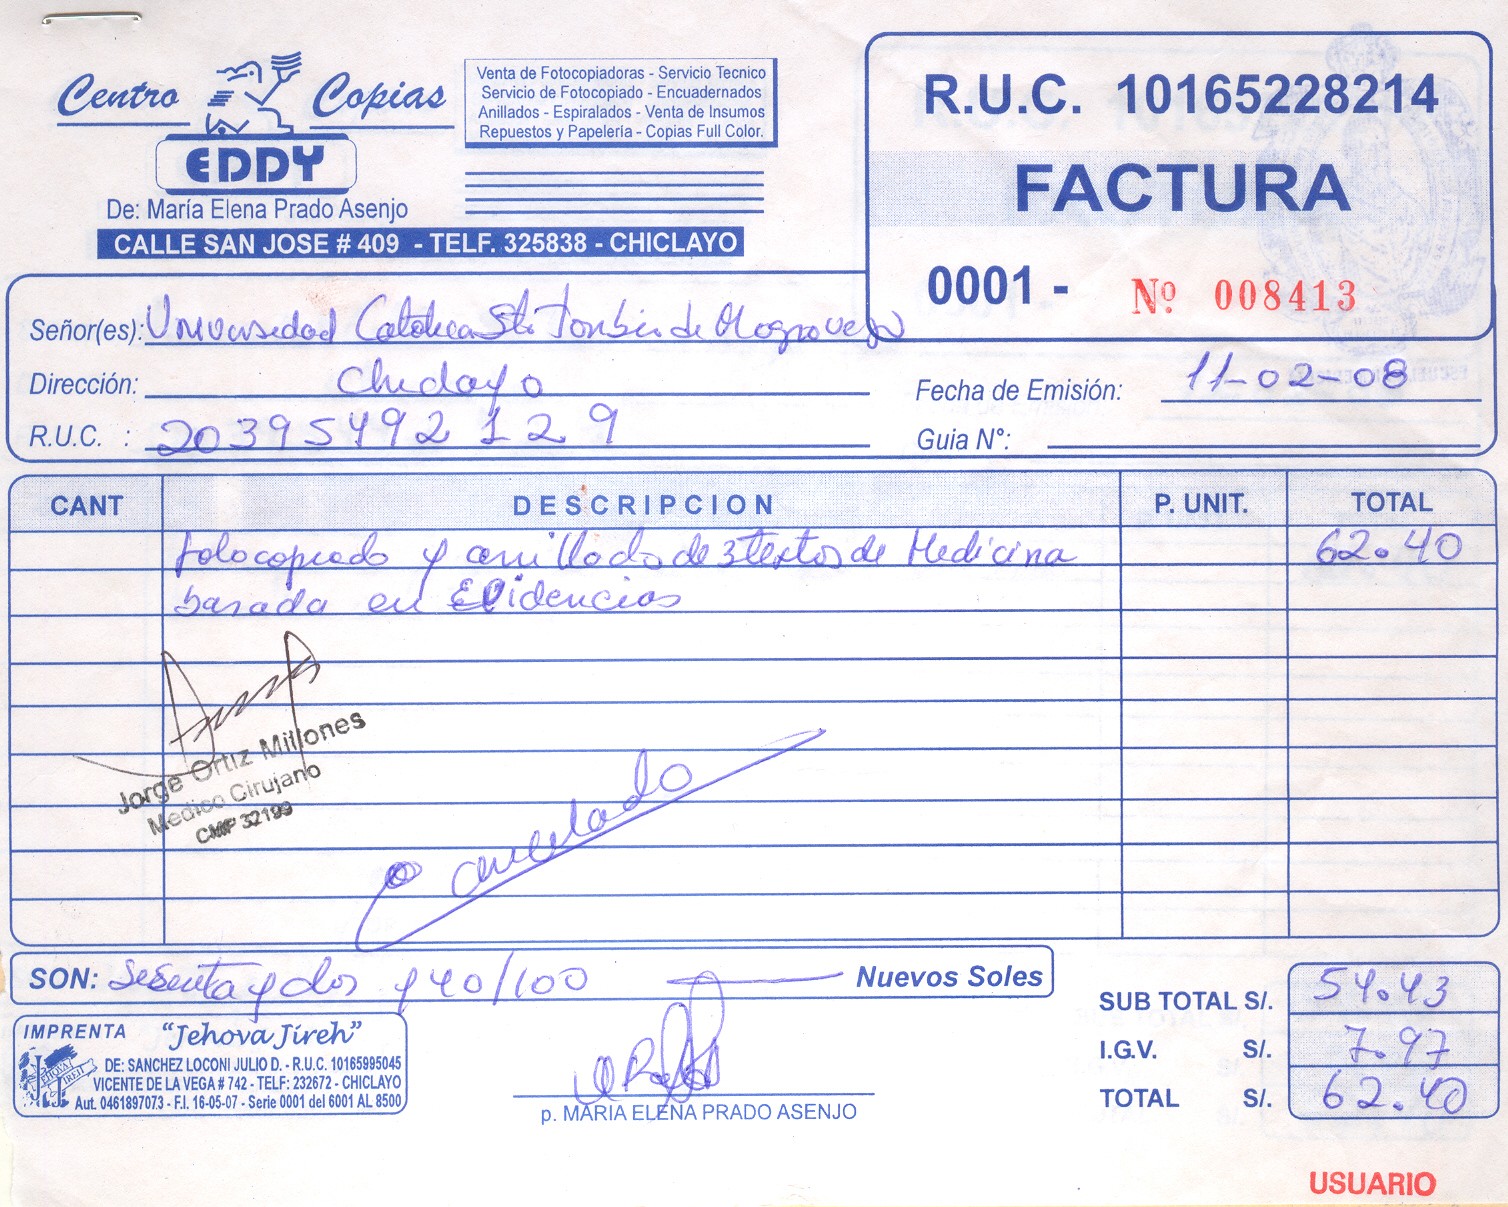 Centro Copias
EDDY
De: María Elena Prado Asenjo
CALLE SAN JOSE # 409 - TELF. 325838 - CHICLAYO
Venta de Fotocopiadoras - Servicio Tecnico
Servicio de Fotocopiado - Encuadernados
Anillados - Espiralados - Venta de Insumos
Repuestos y Papelería - Copias Full Color.
R.U.C. 10165228214
FACTURA
0001 - Nº 008413
Señor(es): Universidad Catolica Sto Toribio de Mogrovejo
Dirección: Chiclayo
Fecha de Emisión: 11-02-08
R.U.C. : 20395492129
Guia N°:
CANT DESCRIPCION P. UNIT. TOTAL
fotocopiado y anillado de 3 textos de Medicina 62.40
basada en Evidencias
Jorge Ortiz Millones
Medico Cirujano
CMP 32199
Cancelado
SON: Sesenta y dos y 40/100 Nuevos Soles
SUB TOTAL S/. 54.43
I.G.V. S/. 7.97
TOTAL S/. 62.40
IMPRENTA "Jehova Jíreh"
DE: SANCHEZ LOCONI JULIO D. - R.U.C. 10165995045
VICENTE DE LA VEGA # 742 - TELF: 232672 - CHICLAYO
Aut. 0461897073 - F.I. 16-05-07 - Serie 0001 del 6001 AL 8500
p. MARIA ELENA PRADO ASENJO
USUARIO